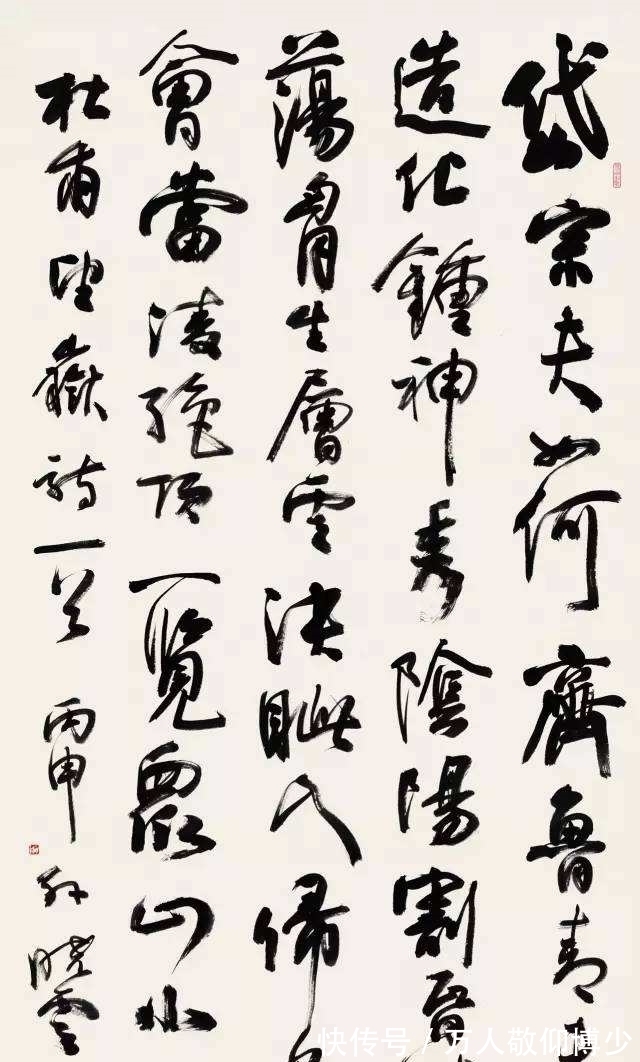 岱宗夫如何齊魯青
造化鍾神秀陰陽割昏
蕩胷生層雲決眦入歸
會當淩絕頂一覽眾山小
杜甫望嶽詩一首 丙申 孫曉雲
快传号 / 万人敬仰博少